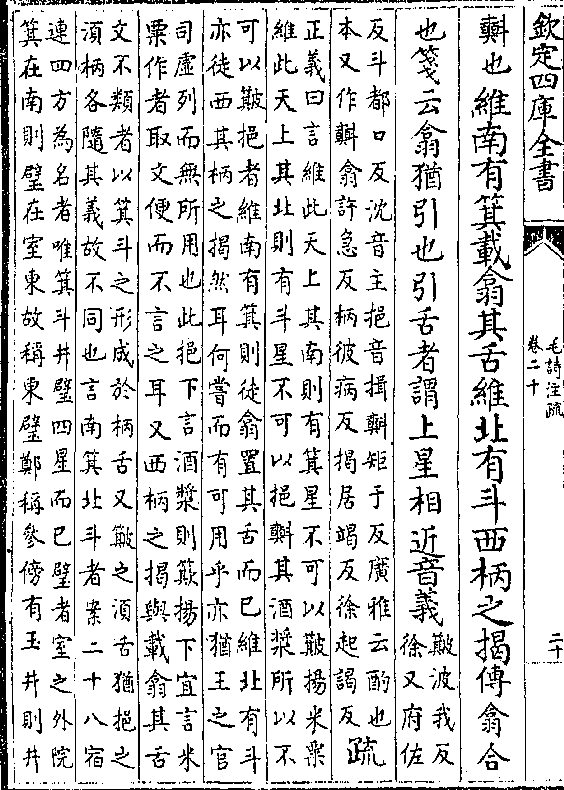 欽定四庫全書
毛詩注疏
卷二十
二十
㪺也維南有箕載翕其舌維北有斗西柄之揭傳翕合
也箋云翕猶引也引舌者謂上星相近音義
簸波我反
徐又府佐
反斗都口反沈音主挹音揖㪺矩于反廣雅云酌也
本又作㪺翕許急反柄彼病反揭居竭反徐起謁反
疏
正義曰言維此天上其南則有箕星不可以簸揚米粟
維此天上其北則有斗星不可以挹㪺其酒漿所以不
可以簸挹者維南有箕則徒翕置其舌而已維北有斗
亦徒西其柄之揭然耳何嘗而有可用乎亦猶王之官
司虛列而無所用也此挹下言酒漿則簸揚下宜言米
粟作者取文便而不言之耳又西柄之揭與載翕其舌
文不類者以箕斗之形成於柄舌又簸之湏舌猶挹之
湏柄各隨其義故不同也言南箕北斗者案二十八宿
連四方為名者唯箕斗井壁四星而已壁者室之外院
箕在南則壁在室東故稱東壁鄭稱參傍有玉井則井